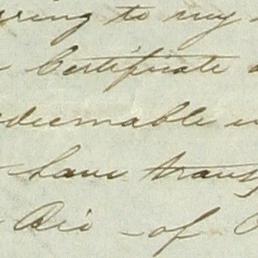 ring to my
Certificate
deemable
have trans
Rio of